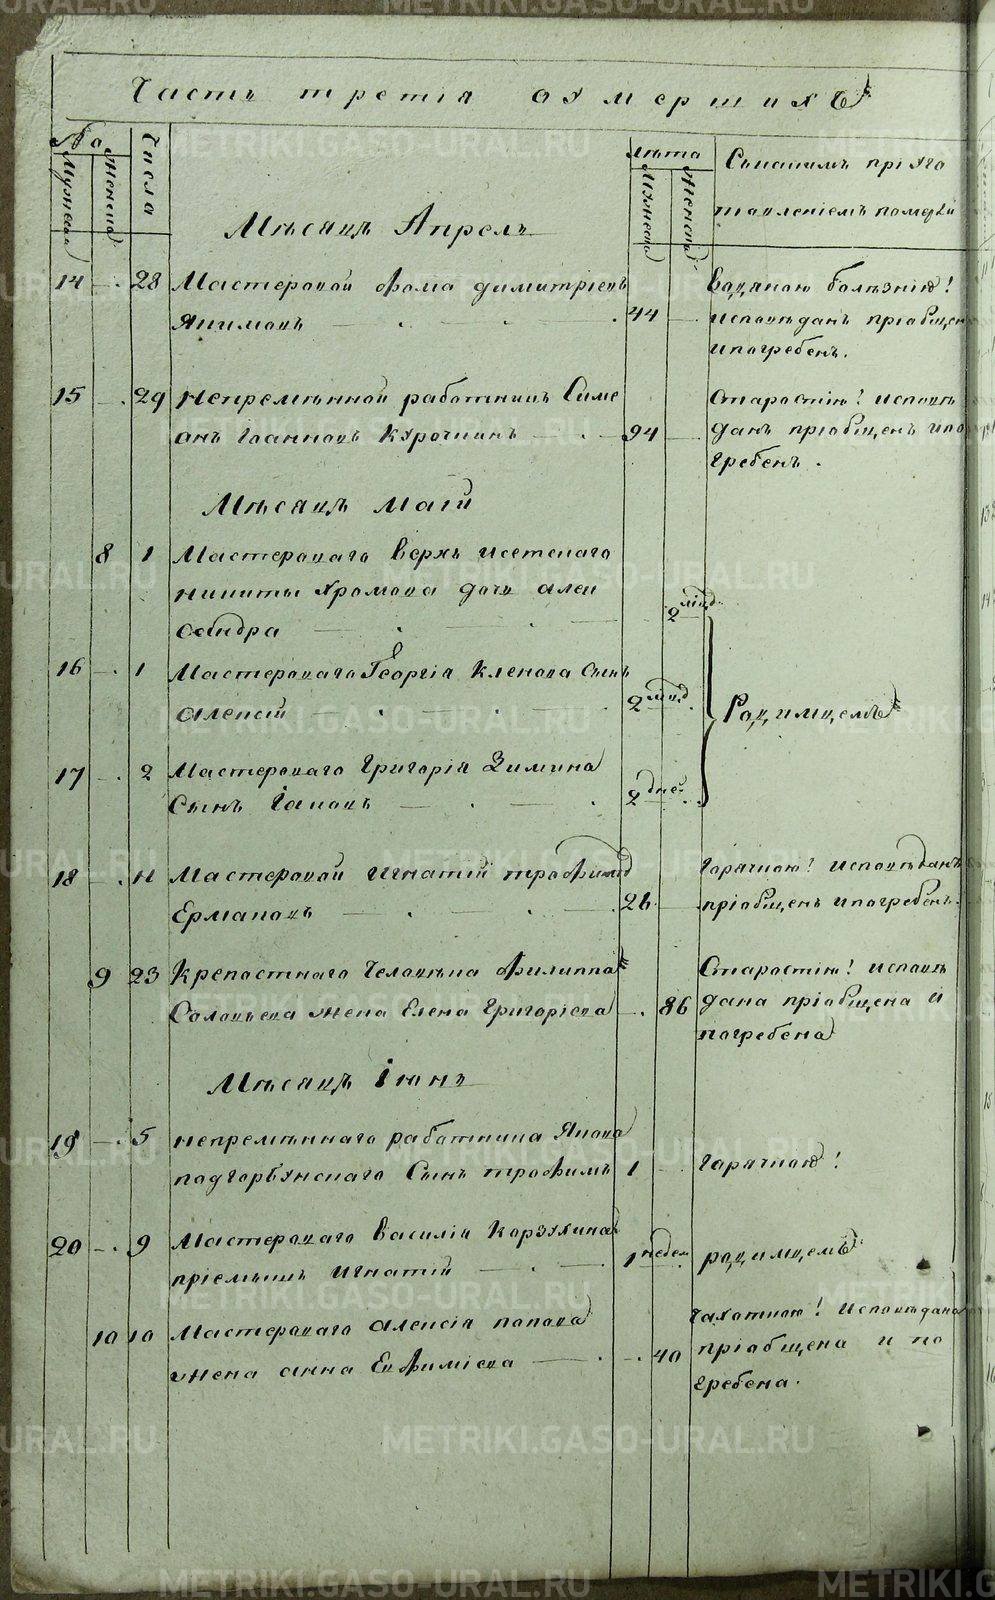 Часть третія оумершихъ
No
Мужеска
Женска
Числа
Лѣта
Мужеска
Женска
Съкакимъ пріуго
товленіемъ померли
Мѣсяцъ Апрель
14 — 28 Мастеровой Фома Димитріевъ
Якимовъ — 44 —
Водяною болѣзнію!
исповѣданъ пріобщенъ
ипогребенъ.
15 — 29 Непремѣнной работникъ Симе
онъ Іоанновъ Курочкинъ — 94 —
Старостію! исповѣ
данъ пріобщенъ ипо
гребенъ.
Мѣсяцъ Маій
8 1 Мастероваго Верхъ Исетскаго
Никиты Хромова дочь Алек
сандра — 2 мѣсяц.
16 — 1 Мастероваго Георгія Кленова Сынъ
Алексій — 2 мѣсяц.
Родимцемъ
17 — 2 Мастероваго Григорія Зимина
Сынъ Іаковъ — 2 дней.
18 — 11 Мастеровой Игнатій Трофимовъ
Ермаковъ — 26 —
Горячкою! исповѣданъ
пріобщенъ ипогребенъ.
9 23 Крепостнаго Человѣка Филиппа
Соловьева жена Елена Григоріева — 86
Старостію! исповѣ
дана пріобщена и
погребена
Мѣсяцъ Іюнь
19 — 5 Непремѣннаго работника Якова
Подгорбунскаго Сынъ Трофимъ 1 —
Горячкою!
20 — 9 Мастероваго Василія Корзухина
пріемышъ Игнатій — 1 недел.
родимцемъ
10 10 Мастероваго Алексія Попова
жена Анна Евфиміева — 40
Чахоткою! Исповѣдана
пріобщена и по
гребена.
METRIKI.GASO-URAL.RU